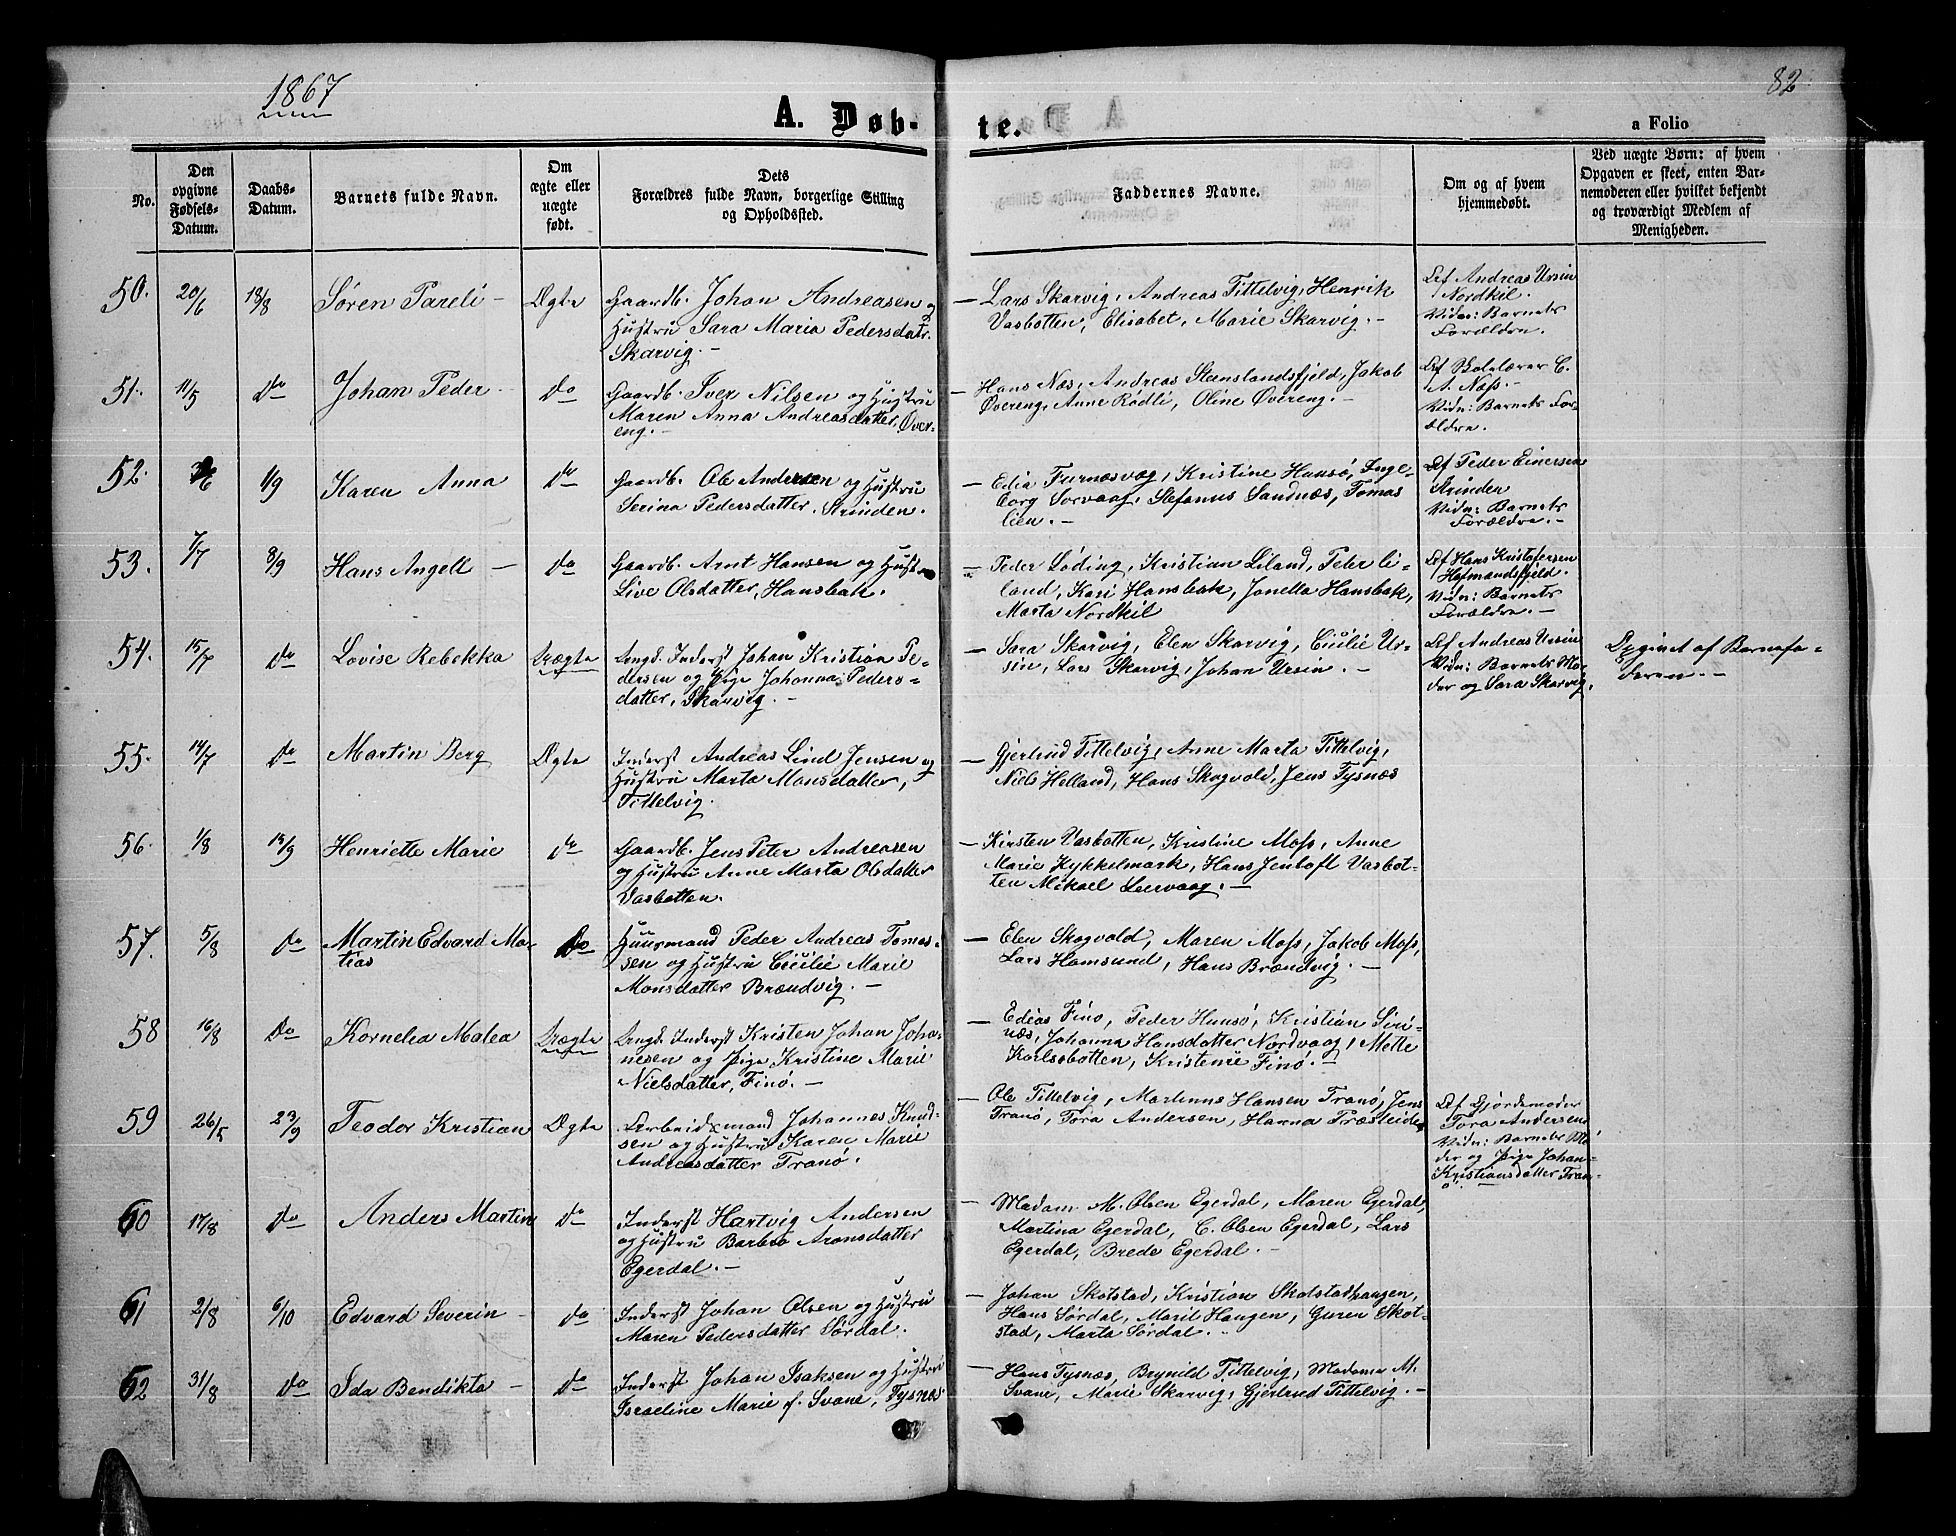 1867
82
A. Døb-
te.
a Folio
No.
Den opgivne Fødsels-Datum.
Daabs-Datum.
Barnets fulde Navn.
Om ægte eller uægte født.
Dets Forældres fulde Navn, borgerlige Stilling og Opholdssted.
Faddernes Navne.
Om og af hvem hjemmedøbt.
Ved uægte Børn: af hvem Opgaven er skeet, enten Barnemoderen eller hvilket bekjendt og troværdigt Medlem af Menigheden.
50. 20/6 18/8 Søren Pareli - Ægte
Gaardb. Johan Andreasen og
Hustru Sara Maria Pedersdatr.
Skarvig. -
- Lars Skarvig, Andreas Tittelvig, Henrik
Vasbotten, Elisabet, Marie Skarvig. -
Af Andreas Ursin
Nordkil.
Vidn: Barnets
Forældre.
51. 11/5 Do Johan Peder - Do
Gaardb. Iver Nilsen og Hustru
Maren Anna Andreasdatter, Øver-
eng. -
- Hans Næs, Andreas Steenslandsfjeld, Jakob
Øvereng, Anne Rødli, Oline Øvereng. -
Af Skolelærer C.
A. Moss. -
Vidn: Barnets For-
ældre.
52. 1/9 Karen Anna Do
Gaardb. Ole Andersen og Hustru
Serina Pedersdatter. Strinden.
- Edia Furnæsvæg, Kristine Hansø, Inge-
borg Sorvaag, Stefanus Sandnæs, Tomas
lien. -
Af Peder Einersen
Strinden
Vidn: Barnets
Forældre. -
53. 7/7 8/9 Hans Angell - Do
Gaardb. Arnt Hansen og Hustru
Live Olsdatter, Hansbak.
- Peder Løding, Kristian Liland, Peter li-
land, Kari Hansbak, Jonetta Hansbak,
Marta Nordkil
Af Hans Kristofersen
Hofmandsfjeld.
Vidn: Barnets
Forældre. -
54. 15/7 Do Lovise Rebekka Uægte
Ungd. Inderst Johan Kristian Pe-
dersen og Pige Johanna Peders-
datter, Skarvig. -
- Sara Skarvig, Elen Skarvig, Cecilie Ur-
sin, Lars Skarvig, Johan Ursin. -
Af Andreas Ursin
Vidn: Barnets Mo-
der og Sara Skarvig.
Opgivet af Barnefa-
deren. -
55. 14/7 Do Martin Berg Ægte
Inderst Andreas Lind Jensen og
Hustru Marta Monsdatter,
Tittelvig.
- Gjertrud Tittelvig, Anne Marta Tittelvig,
Niels Helland, Hans Skogvold, Jens Tysnæs
56. 1/8 15/9 Henriette Marie do
Gaardb. Jens Peter Andreasen
og Hustru Anne Marta Olsdatter
Vasbotten.
- Kirsten Vasbotten, Kristine Moss, Anne
Marie Kykkelmark, Hans Jentoft Vasbot-
ten Mikael Leervaag. -
57. 5/8 Do Martin Edvard Ma-
tias Do
Huusmand Peder Andreas Tomas-
sen og Hustru Cecilie Marie
Monsdatter Brændvig. -
- Elen Skogvold, Maren Moss, Jakob Moss,
Lars Hamsund, Hans Brændvig. -
58 16/8 Do Kornelia Malea Uægte
Ungd. Inderst Kristen Johan Joha-
nesen og Pige Kristine Marie
Nielsdatter, Finø. -
- Edias Finø, Peder Hansø, Kristian Siri-
næs, Johanna Hansdatter Nordvaag, Mette
Karlsbotten, Kristence Finø. -
59 26/5 23/9 Teodor Kristian Ægte
Arbeidsmand Johannes Knud-
sen og Hustru Karen Marie
Andreasdatter Tranø.
- Ole Tittelvig, Martinus Hansen Tranø, Jens
Tranø, Tora Andersen, Hanna Præsteide
Af Gjordemoder
Tora Andersen
Vidn: Barnets Mo-
der og Pige Johan-
Kristiansdatter Tran-
ø.
60 17/8 Do Anders Martin do
Inderst Hartvig Andersen
og Hustru Barbro Aronsdatter
Egerdal. -
- Madam M. Olsen Egerdal, Maren Egerdal,
Martina Egerdal, C. Olsen Egerdal, Lars
Egerdal, Brede Egerdal. -
61 2/8 6/10 Edvard Severin - do
Inderst Johan Olsen og Hustru
Maren Pedersdatter Sørdal.
- Johan Skotstad, Kristian Skotstadhaugen,
Hans Sørdal, Maril Haugen, Guren Skot-
stad, Marta Sørdal.
62 31/8 Do Ida Bendikta - do
Inderst Johan Isaksen og Hustru
Israeline Marie f. Svane, Tysnæs
- Hans Tysnæs, Brynild Tittelvig, Madame M.
Svane, Marie Skarvig, Gjertrud Tittelvig. -